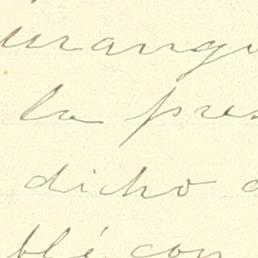 urangu
la pres
dicho
blé con